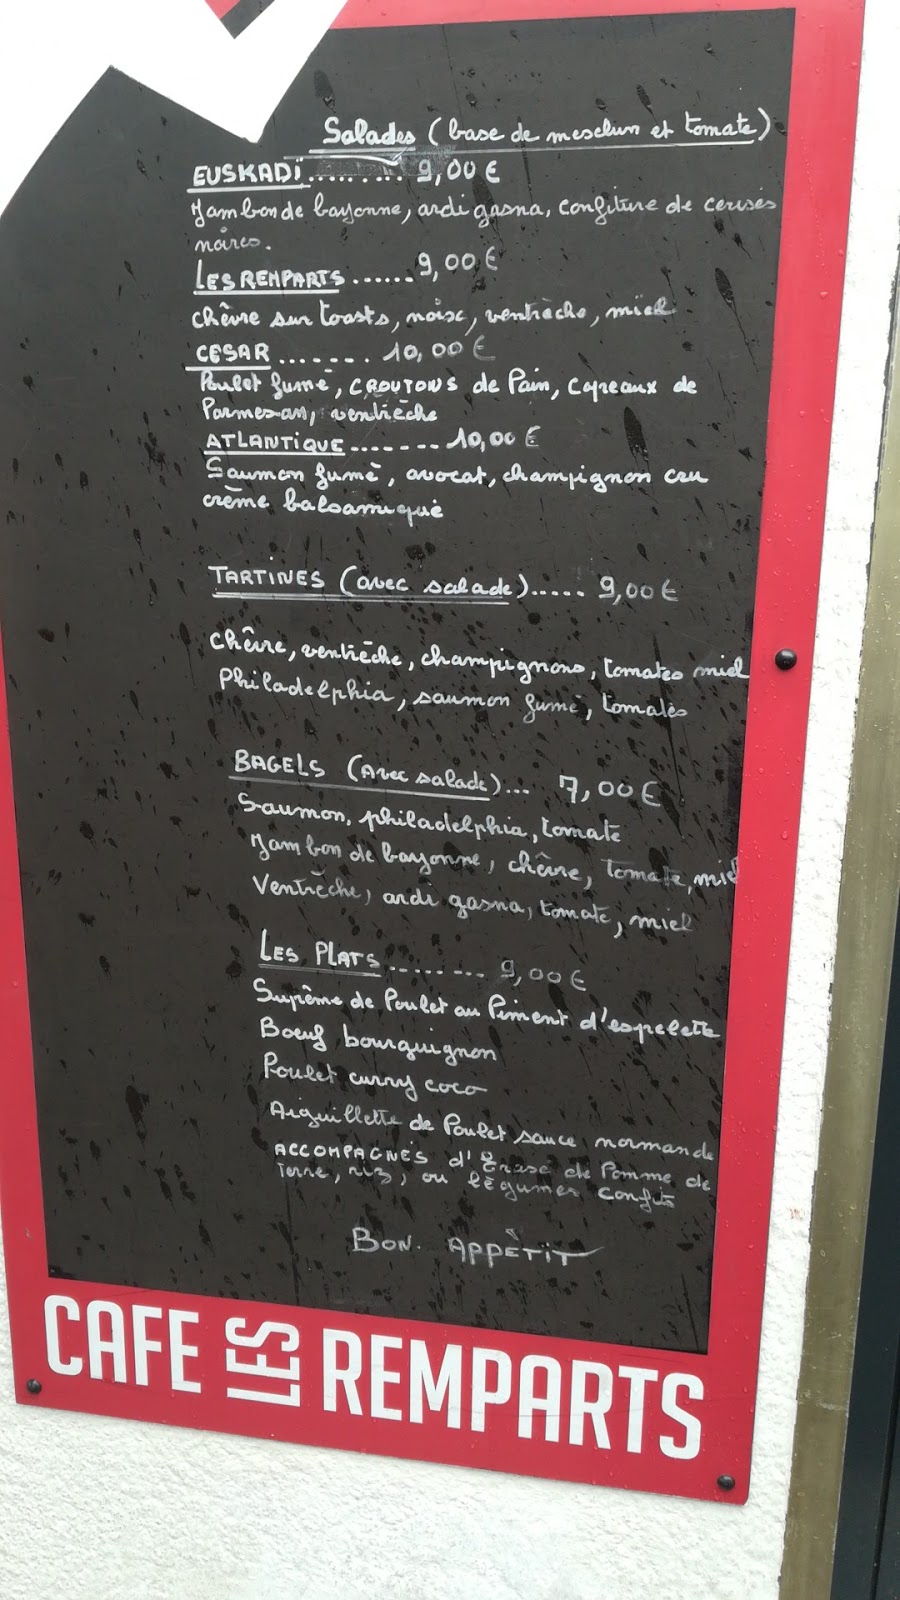 Salades (base de mesclun et tomate)
EUSKADI......... 9,00 €
Jambon de bayonne, ardi gasna, confiture de cerises
noires.
LES REMPARTS......9,00 €
chèvre sur toasts, noix, ventrèche, miel
CESAR ....... 10,00 €
Poulet fumé, CROUTONS de Pain, copeaux de
Parmesan, ventrèche
ATLANTIQUE.......10,00 €
Saumon fumé, avocat, champignon cru
crème balsamique
TARTINES (avec salade)..... 9,00 €
chèvre, ventrèche, champignons, tomates miel
Philadelphia, saumon fumé, tomates
BAGELS (Avec salade)... 7,00 €
Saumon, philadelphia, tomate
Jambon de bayonne, chèvre, tomate, miel
Ventrèche, ardi gasna, tomate, miel
LES PLATS......... 9,00 €
Suprême de Poulet au Piment d'espelette
Bœuf bourguignon
Poulet curry coco
Aiguillette de Poulet sauce normande
ACCOMPAGNÉS d'Ecrasé de Pomme de
Terre, riz, ou légumes confits
BON. APPÉTIT
CAFE LES REMPARTS